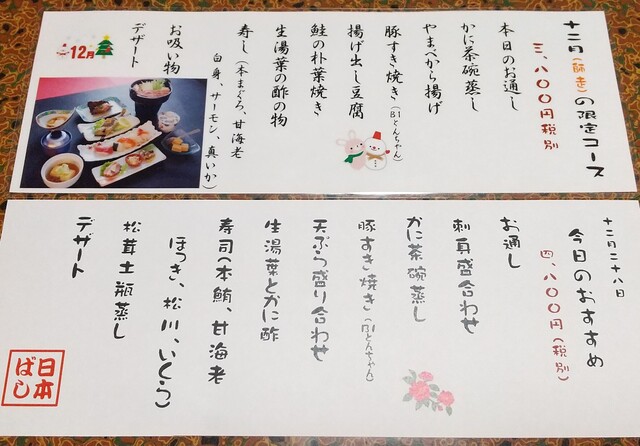 十二月(師走)の限定コース
三、八〇〇円税別
本日のお通し
かに茶碗蒸し
やまべから揚げ
豚すき焼き(B1とんちゃん)
揚げ出し豆腐
鮭の朴葉焼き
生湯葉の酢の物
寿し(本まぐろ、甘海老
白身、サーモン、真いか)
お吸い物
デザート
12月
十二月二十八日
今日のおすすめ
四、八〇〇円(税別)
お通し
刺身盛合わせ
かに茶碗蒸し
豚すき焼き(B1とんちゃん)
天ぷら盛り合わせ
生湯葉とかに酢
寿司(本鮪、甘海老
ほっき、松川、いくら)
松茸土瓶蒸し
デザート
日本ばし